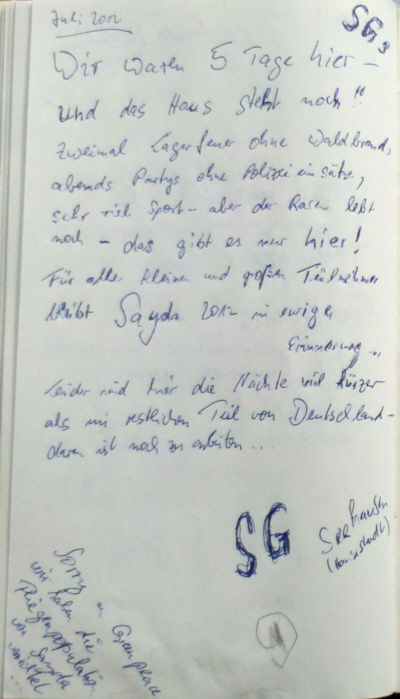 Juli 2012
SG
Wir waren 5 Tage hier –
und das Haus steht noch!!
Zweimal Lagerfeuer ohne Waldbrand,
abends Partys ohne Polizeieinsätze,
sehr viel Sport – aber der Rasen lebt
noch – das gibt es nur hier!
Für alle kleinen und großen Teilnehmer
bleibt Sayda 2012 in ewiger
Erinnerung...
Leider sind hier die Nächte viel kürzer
als im restlichen Teil von Deutschland –
daran ist noch zu arbeiten...
SG
Seehausen
(Hansestadt)
Sorry an Greenpeace
wir haben die
Fliegenpopulation
von Sayda